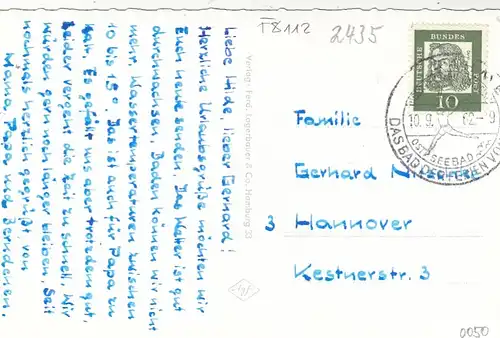 T8112
2435
Liebe Hilde, lieber Gerhard!
Herzliche Urlaubsgrüße möchten wir
Euch heute senden. Das Wetter ist gut
durchwachsen, Baden können wir nicht
mehr, Wassertemperaturen zwischen
10 bis 15°. Das ist auch für Papa zu
kalt. Es gefällt uns aber trotzdem gut,
leider vergeht die Zeit zu schnell. Wir
würden gern noch länger bleiben. Seid
nochmals herzlich gegrüßt von
Mama, Papa und
Verlag: Ferd. Lagerbauer & Co., Hamburg 33
Agfa
DEUTSCHE
BUNDES
POST
10
10.9.62-9
OSTSEEBAD
DAS BAD DER FERIEN
Familie
Gerhard
3 Hannover
Kestnerstr. 3
0050